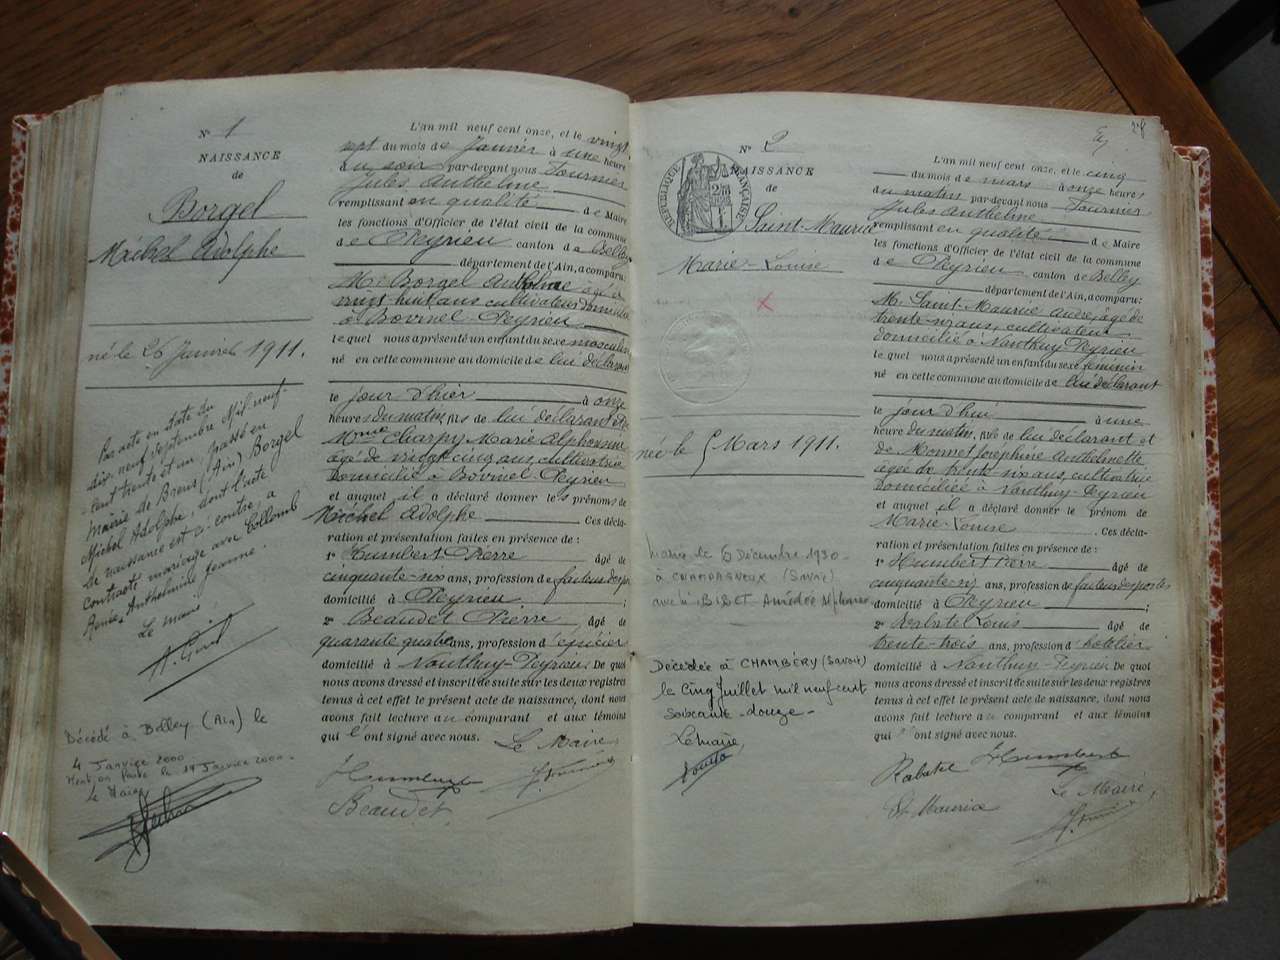 N° 1
NAISSANCE
de
Borgel
Michel Adolphe
né le 26 Janvier 1911.
Par acte en date du
dix neuf septembre Mil neuf
cent trente et un passé en
Mairie de Brens (Ain) Borgel
Michel Adolphe, dont l'acte
de naissance est ci-contre a
contracté mariage avec Collomb
Renée Anthelmine Jeanne.
Le maire
Décédé à Belley (Ain) le
4 Janvier 2000
Mention faite le 14 Janvier 2000.
Le Maire
L'an mil neuf cent onze, et le vingt
sept du mois de Janvier à une heure
du soir par-devant nous Tournier
Jules Anthelme
remplissant en qualité de Maire
les fonctions d'Officier de l'état civil de la commune
de Peyrieu canton de Belley
département de l'Ain, a comparu:
M. Borgel Anthelme âgé de
vingt huit ans, cultivateur domicilié
à Bovinel Peyrieu
lequel nous a présenté un enfant du sexe masculin
né en cette commune au domicile de lui déclarant
le jour d'hier à onze
heures du matin, fils de lui déclarant et de
Mme Charpy Marie Alphonsine
âgée de vingt cinq ans, cultivatrice
domiciliée à Bovinel Peyrieu
et auquel il a déclaré donner les prénoms de
Michel Adolphe Ces décla-
ration et présentation faites en présence de :
1° Humbert Pierre âgé de
cinquante-six ans, profession de facteur des postes
domicilié à Peyrieu ;
2° Beaudet Pierre, âgé de
quarante quatre ans, profession d'épicier
domicilié à Nanthuy-Peyrieu. De quoi
nous avons dressé et inscrit de suite sur les deux registres
tenus à cet effet le présent acte de naissance, dont nous
avons fait lecture au comparant et aux témoins
qui l'ont signé avec nous. Le Maire
Humbert
Beaudet
28
N° 2
NAISSANCE
de
RÉPUBLIQUE FRANÇAISE
Saint-Maurice
Marie-Louise
né le 5 Mars 1911.
Mariée le 6 Décembre 1930
à CHAMPAGNEUX (Savoie)
avec BIBET Amédée Alphonse
Décédée à CHAMBÉRY (Savoie)
le Cinq Juillet mil neuf cent
soixante-douze-
Le maire,
L'an mil neuf cent onze, et le cinq
du mois de mars à onze heures
du matin par-devant nous Tournier
Jules Anthelme
remplissant en qualité de Maire
les fonctions d'Officier de l'état civil de la commune
de Peyrieu canton de Belley
département de l'Ain, a comparu :
M. Saint-Maurice André, âgé de
trente-six ans, cultivateur
domicilié à Nanthuy Peyrieu
lequel nous a présenté un enfant du sexe féminin
né en cette commune au domicile de lui déclarant
le jour d'hui à une
heure du matin, fille de lui déclarant et
de Monnet Joséphine Anthelmette
âgée de trente six ans, cultivatrice
domiciliée à Nanthuy-Peyrieu
et auquel il a déclaré donner le prénom de
Marie-Louise. Ces décla-
ration et présentation faites en présence de :
1° Humbert Pierre âgé de
cinquante-six ans, profession de facteur des postes
domicilié à Peyrieu ;
2° Rabatel Louis âgé de
trente-trois ans, profession d'hôtelier
domicilié à Nanthuy-Peyrieu De quoi
nous avons dressé et inscrit de suite sur les deux registres
tenus à cet effet le présent acte de naissance, dont nous
avons fait lecture au comparant et aux témoins
qui l'ont signé avec nous.
Rabatel Humbert
St Mauria Le Maire,